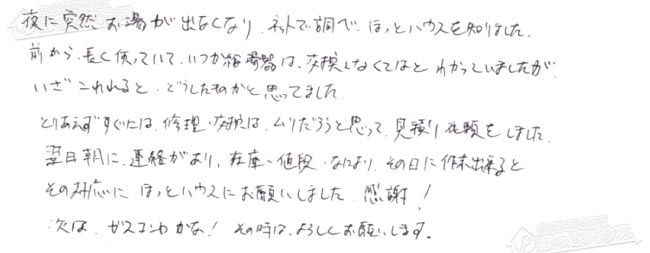 夜に突然お湯が出なくなり、ネットで調べ、ほっとハウスを知りました。
前から、長く使っていて、いつか給湯器は、交換しなくてはと わかっていましたが、
いざ これれると、どうしたものかと思ってました。
とりあえずすぐには、修理・交換は、ムリだろうと思って、見積り依頼をしました。
翌日朝に、連絡があり、在庫・値段、なにより、その日に作業出来ると
その対応に ほっとハウスにお願いしました。感謝！
次は、ガスコンロかな！ その時は、よろしくお願いします。
ほっとハウス